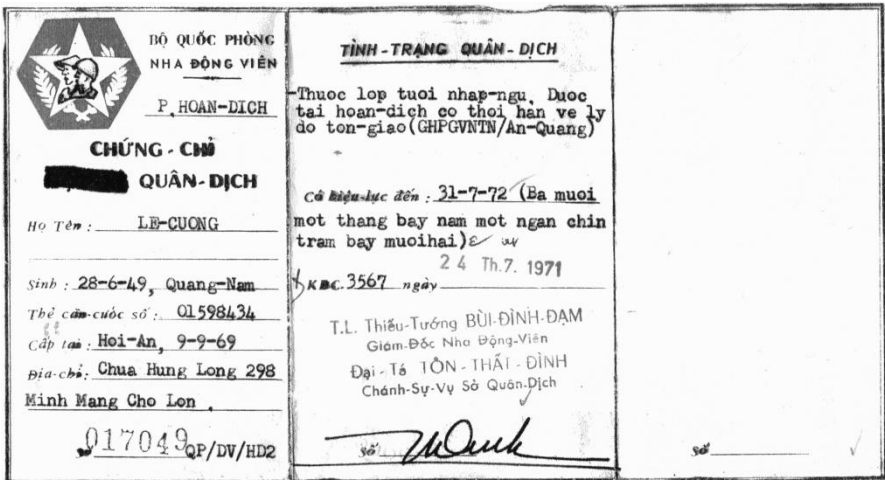 BỘ QUỐC PHÒNG
NHA ĐỘNG VIÊN
P.HOAN-DICH
CHỨNG-CHỈ
QUÂN-DỊCH
Họ Tên: LE-CUONG
Sinh: 28-6-49, Quang-Nam
Thẻ căn-cước số: 01598434
Cấp tại: Hoi-An, 9-9-69
Địa-chỉ: Chua Hung Long 298
Minh Mang Cho Lon.
số 017049 QP/DV/HD2
TÌNH-TRẠNG QUÂN-DỊCH
-Thuoc lop tuoi nhap-ngu. Duoc
tai hoan-dich co thoi han ve ly
do ton-giao(GHPGVNTN/An-Quang)
Có hiệu-lực đến: 31-7-72 (Ba muoi
mot thang bay nam mot ngan chin
tram bay muoihai)
24 Th.7. 1971
KBC.3567 ngày
T.L. Thiếu-Tướng BÙI-ĐÌNH-ĐẠM
Giám-Đốc Nha Động-Viên
Đại-Tá TÔN-THẤT-ĐÌNH
Chánh-Sự-Vụ Sở Quân-Dịch
số
số